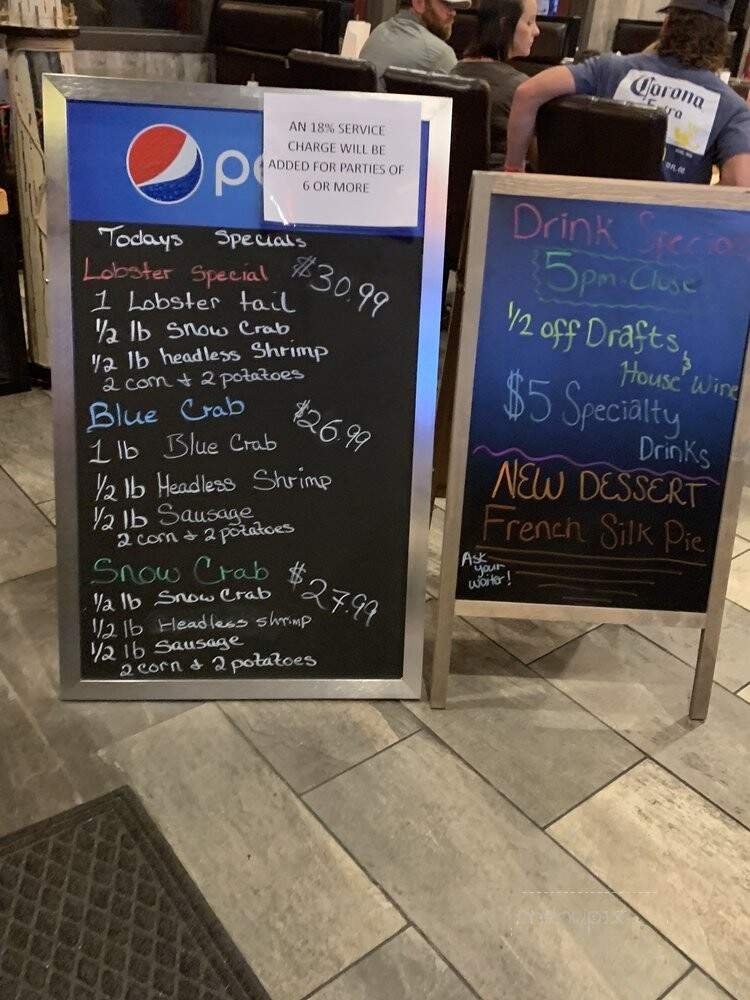 pe
AN 18% SERVICE
CHARGE WILL BE
ADDED FOR PARTIES OF
6 OR MORE
Todays Specials
Lobster Special $30.99
1 Lobster tail
1/2 lb Snow Crab
1/2 lb headless Shrimp
2 corn + 2 potatoes
Blue Crab $26.99
1 lb Blue Crab
1/2 lb Headless Shrimp
1/2 lb Sausage
2 corn + 2 potatoes
Snow Crab $27.99
1/2 lb Snow Crab
1/2 lb Headless shrimp
1/2 lb Sausage
2 corn + 2 potatoes
Drink Specia
5pm-Close
1/2 off Drafts
& House Wine
$5 Specialty
Drinks
NEW DESSERT
French Silk Pie
Ask
your
waiter!
Corona
Extra